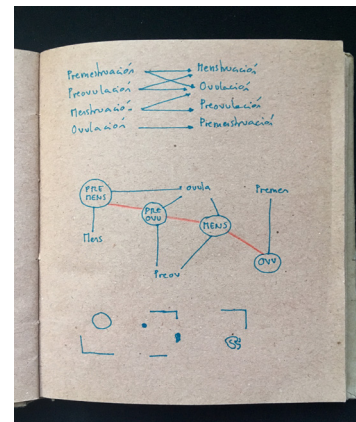 Premestruación Menstruación
Preovulación Ovulación
Menstruación Preovulación
Ovulación Premenstruación
PRE
MENS
ovula
Premen
PRE
OVU
MENS
Mens
OVU
Preov